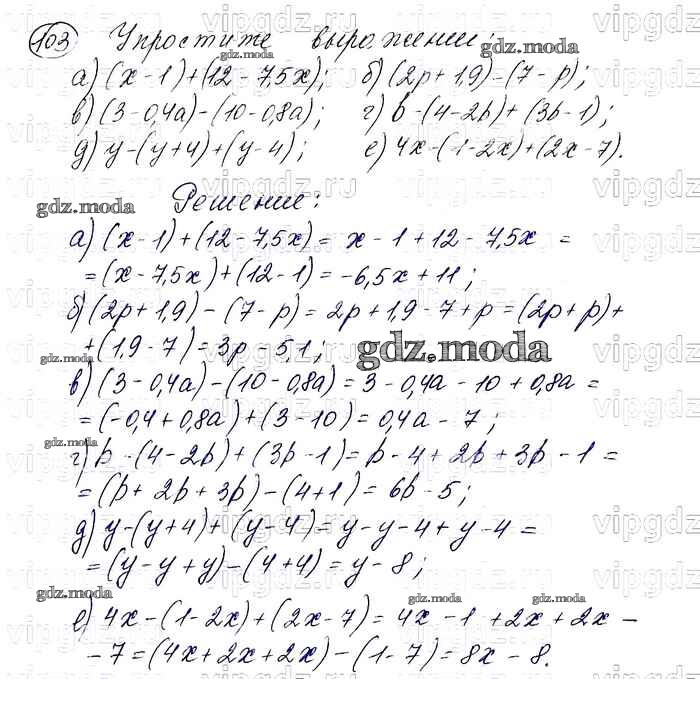 103 Упростите выражении:
а) (x-1)+(12-7,5x); б) (2p+1,9)-(7-p);
в) (3-0,4a)-(10-0,8a); г) b-(4-2b)+(3b-1);
д) y-(y+4)+(y-4); е) 4x-(1-2x)+(2x-7).
Решение:
а) (x-1)+(12-7,5x)= x-1+12-7,5x =
=(x-7,5x)+(12-1)=-6,5x+11;
б) (2p+1,9)-(7-p)=2p+1,9-7+p=(2p+p)+
+(1,9-7)=3p-5,1;
в) (3-0,4a)-(10-0,8a)=3-0,4a-10+0,8a=
=(-0,4+0,8a)+(3-10)=0,4a-7;
г) b-(4-2b)+(3b-1)=b-4+2b+3b-1=
=(b+2b+3b)-(4+1)=6b-5;
д) y-(y+4)+(y-4)=y-y-4+y-4=
=(y-y+y)-(4+4)=y-8;
е) 4x-(1-2x)+(2x-7)=4x-1+2x+2x-
-7=(4x+2x+2x)-(1-7)=8x-8.
gdz.moda
gdz.moda
gdz.moda
gdz.moda
gdz.moda
gdz.moda
gdz.moda
gdz.moda
vipgdz.ru
vipgdz